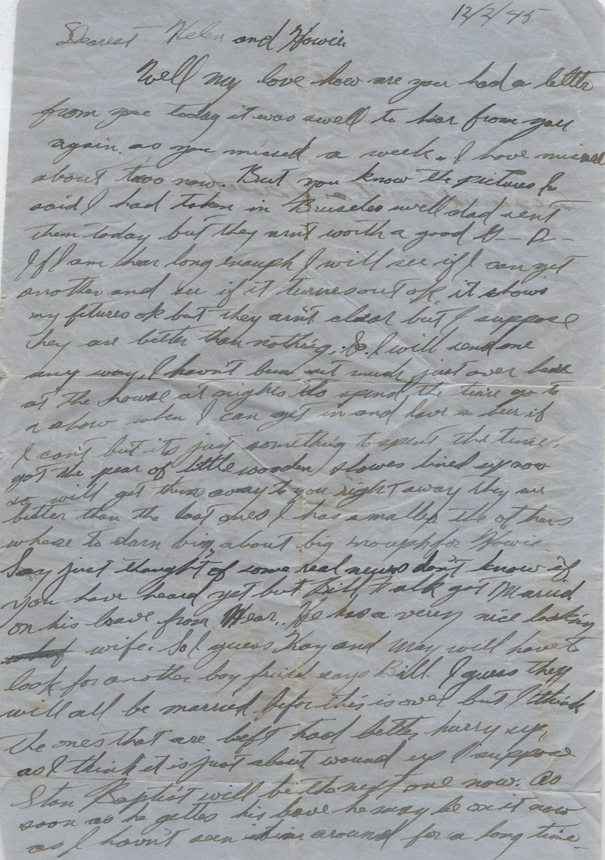 12/2/45
Dearest Helen and Howie.
Well my love how are you had a letter
from you today it was swell to hear from you
again. as you missed a week. I have missed
about two now. But you know the pictures I
said I had taken in Bruseles well dad sent
them today but they arn't worth a good G-- D-
If I am hear long enough I will see if I can get
another and see if it turns out ok it shows
my fitures ok but they ain't clear but I suppose
they are better than nothing. So I will send one
any way. I havn't been out much just over
at the house at nights to spend the time go to
a show when I can get in and have a beer if
I can't but its just something to spent the time.
got the pear of little wooden showes lined up
so will get them away to you right away they are
better than the last ones I has smaller the others
where to darn big, about big enough for Howie
Say just thought of some real news don't know if
you have heard yet but Bill got Married
on his leave from Hear. He has a very nice looking
wife. So I guess Kay and May will have to
look for another boy friend says Bill. I guess they
will all be married befor this is over but I think
the ones that are left had better hurry up,
as I think it is just about wound up I suppose
Stan Baptist will be the next one now. as
soon as he gettes his leave he may be on it now
as I havn't seen him around for a long time-